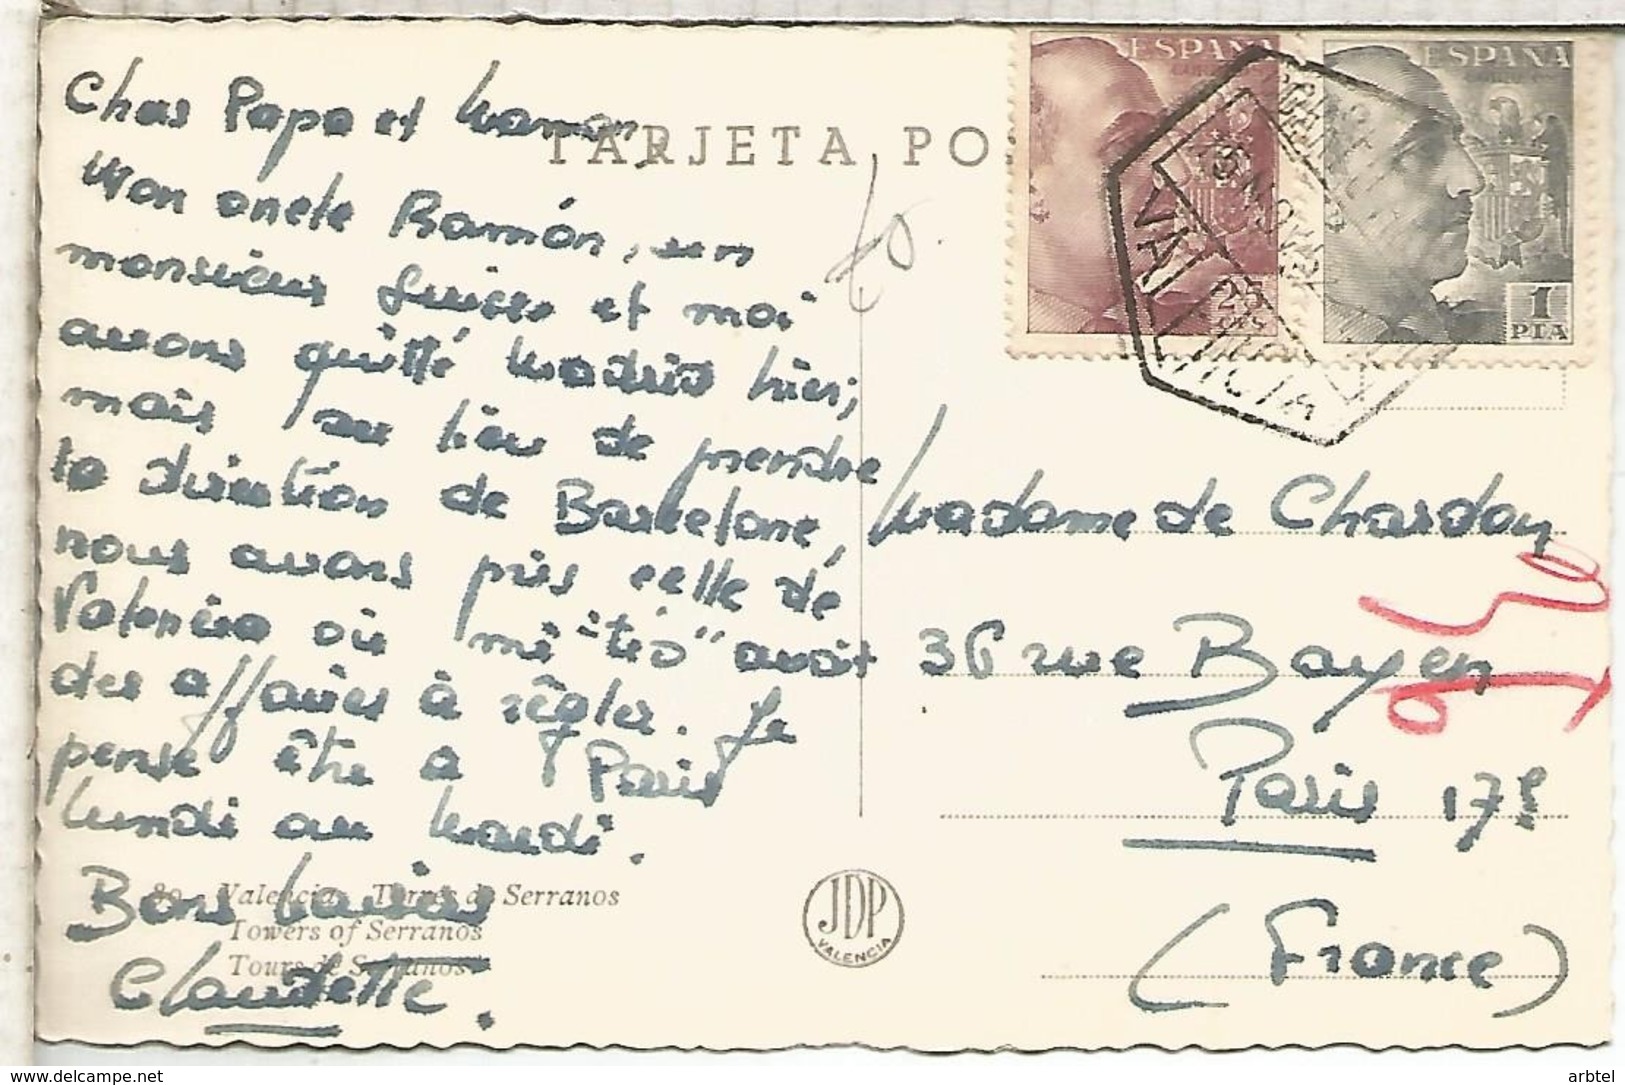 TARJETA PO
Chers Papa et Maman,
Mon oncle Ramón, un
monsieur Suisse et moi
avons quitté Madrid hier;
mais au lieu de prendre
la direction de Barcelone,
nous avons pris celle de
Valencia où mi "tio" avait
des affaires à régler. Je
pense être à Paris
lundi ou mardi.
Bons baisers
Claudette.
89 - Valencia Torres de Serranos
Towers of Serranos
Tours de Serranos
JDP
VALENCIA
ESPAÑA
25
ESPAÑA
1
PTA
VALENCIA
Madame de Chardon
36 rue Bayen
Paris 17e
(France)
arbtel
https://www.delcampe.net